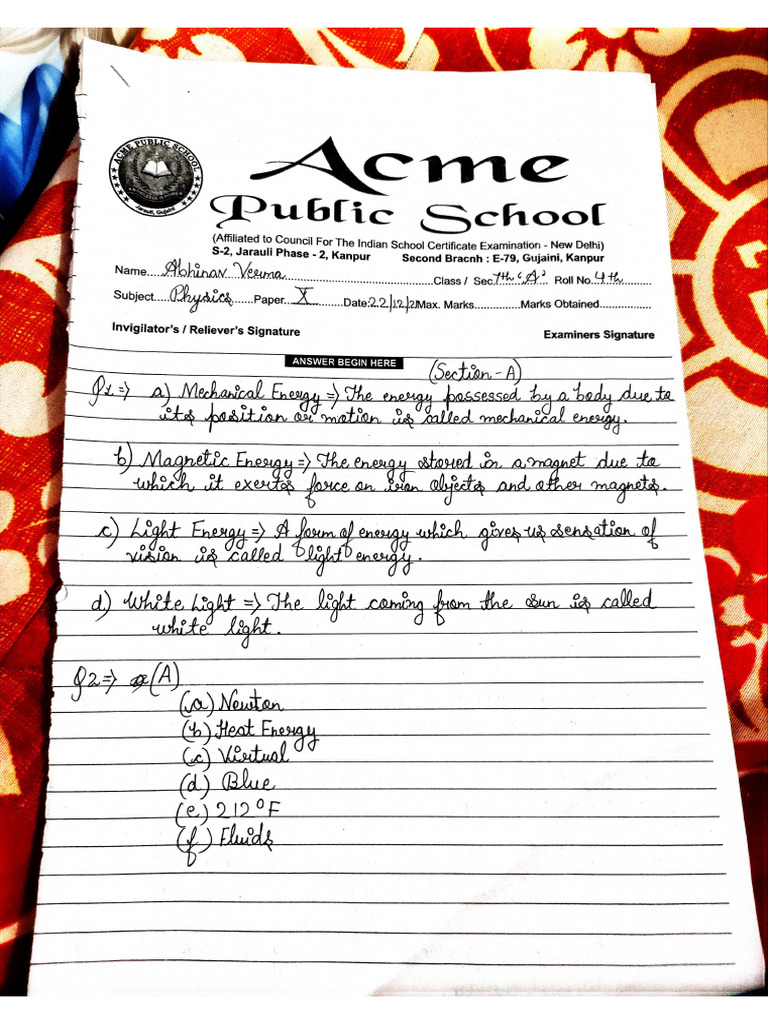 ACME PUBLIC SCHOOL
Jarauli, Gujaini
Acme
Public School
(Affiliated to Council For The Indian School Certificate Examination - New Delhi)
S-2, Jarauli Phase - 2, Kanpur Second Bracnh : E-79, Gujaini, Kanpur
Name.....Abhinav Verma..........Class / Sec 7th 'A' Roll No. 4th..........
Subject.....Physics.....Paper.....X..........Date:22/12/21 Max. Marks..........Marks Obtained..........
Invigilator's / Reliever's Signature Examiners Signature
ANSWER BEGIN HERE
(Section-A)
Q1=> a) Mechanical Energy=> The energy possessed by a body due to
its position or motion is called mechanical energy.
b) Magnetic Energy=> The energy stored in a magnet due to
which it exerts force on iron objects and other magnets.
c) Light Energy=> A form of energy which gives us sensation of
vision is called light energy.
d) White Light => The light coming from the sun is called
white light.
Q2=> (A)
(a) Newton
(b) Heat Energy
(c) Virtual
(d) Blue
(e) 212°F
(f) Fluids